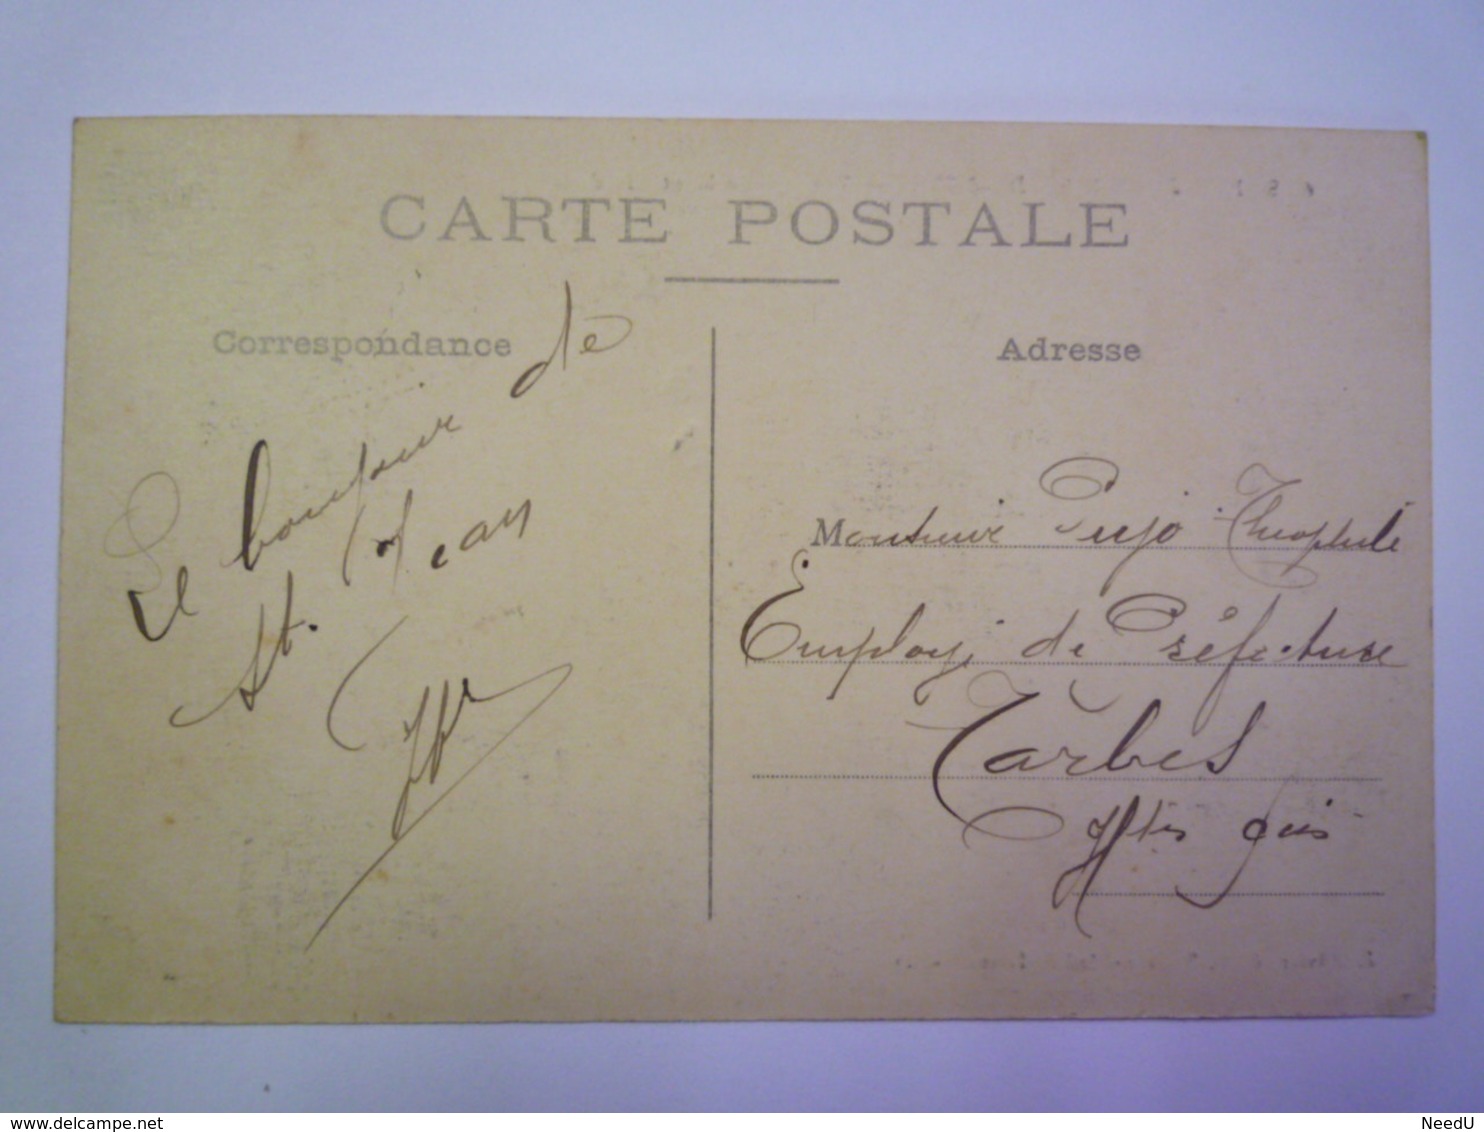 CARTE POSTALE
Correspondance
Le bonjour de
St. Jean
Adresse
Monsieur Pujo Théophile
Employé de Préfecture
Tarbes
Htes
www.delcampe.net
NeedU